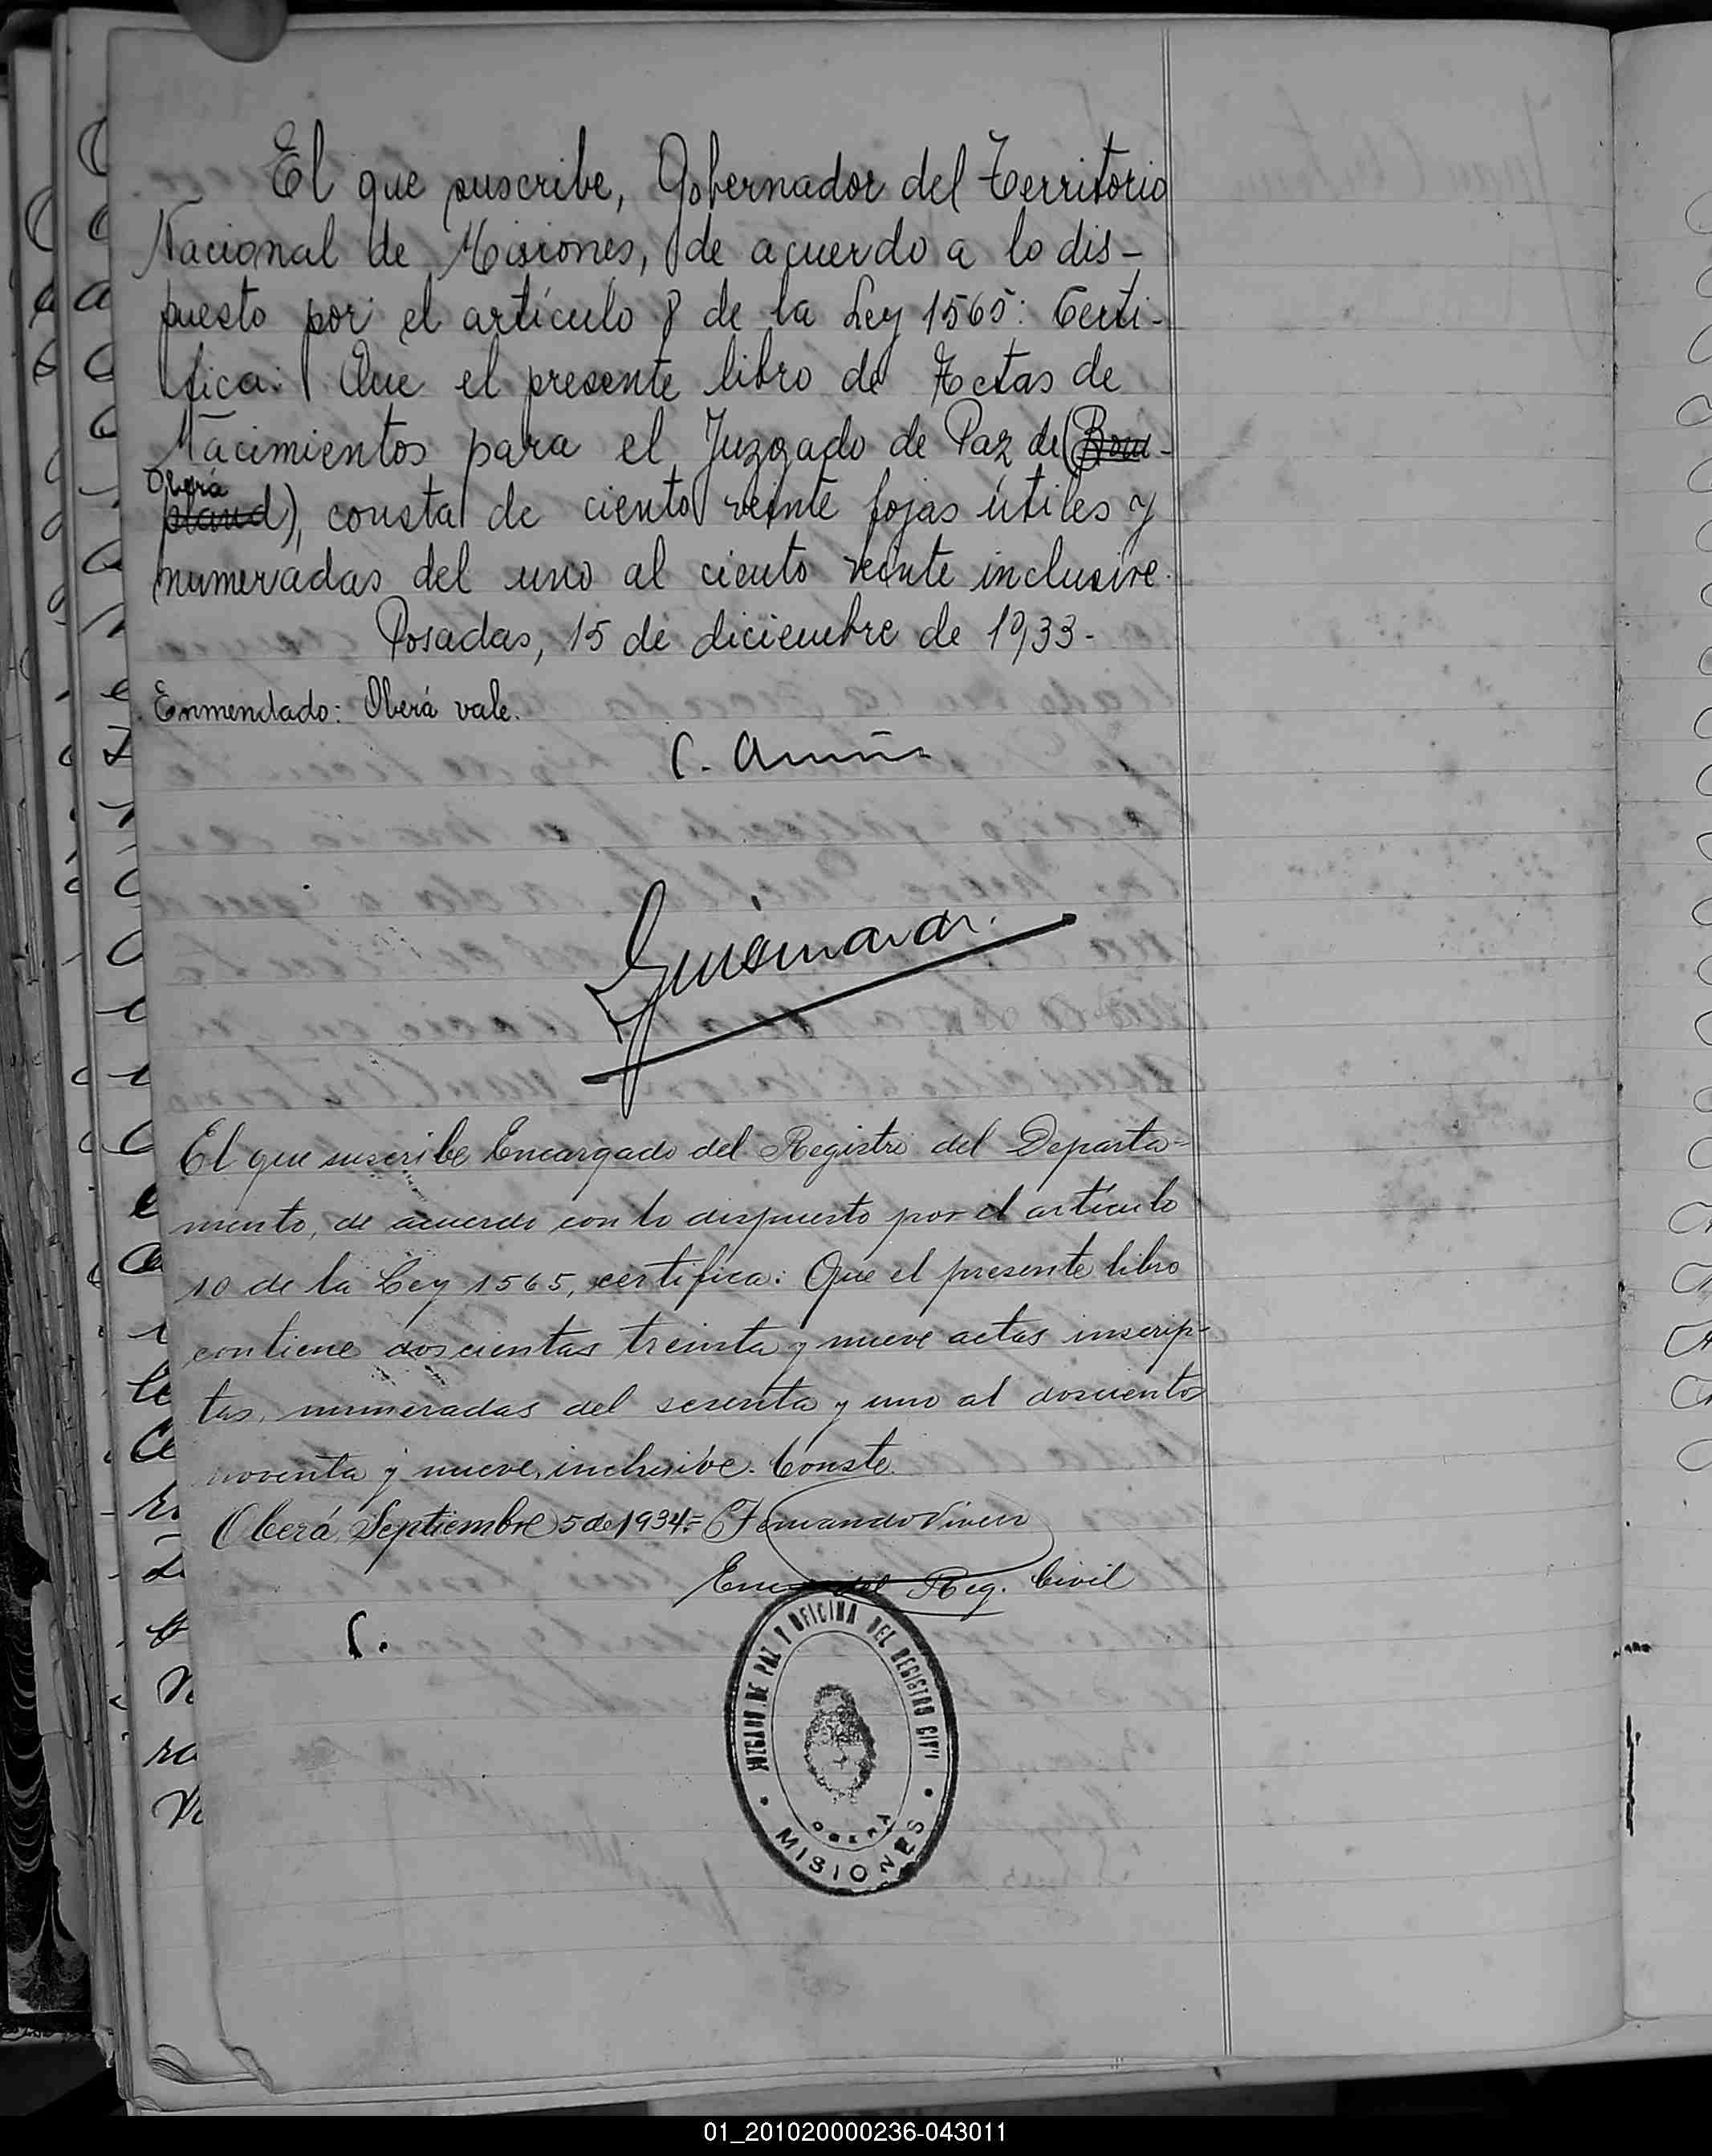 El que suscribe, Gobernador del Territorio
Nacional de Misiones, de acuerdo a lo dis-
puesto por el artículo 8 de la Ley 1565: Certi-
fica: Que el presente libro de Actas de
Nacimientos para el Juzgado de Paz de (Bom-
Oberá
pland), consta de ciento veinte fojas útiles y
numeradas del uno al ciento veinte inclusive.
Posadas, 15 de diciembre de 1933-
Enmendado: Oberá vale.
C.
El que suscribe Encargado del Registro del Departa-
mento, de acuerdo con lo dispuesto por el artículo
10 de la Ley 1565, certifica: Que el presente libro
contiene doscientas treinta y nueve actas inscrip-
tas, numeradas del sesenta y uno al doscientos
noventa y nueve, inclusive. Conste.
Oberá, Septiembre 5 de 1934.= Fernando
Enc. del Reg. Civil
C.
JUZGADO DE PAZ Y OFICINA DEL REGISTRO CIVI
OBERA
MISIONES
01_201020000236-043011